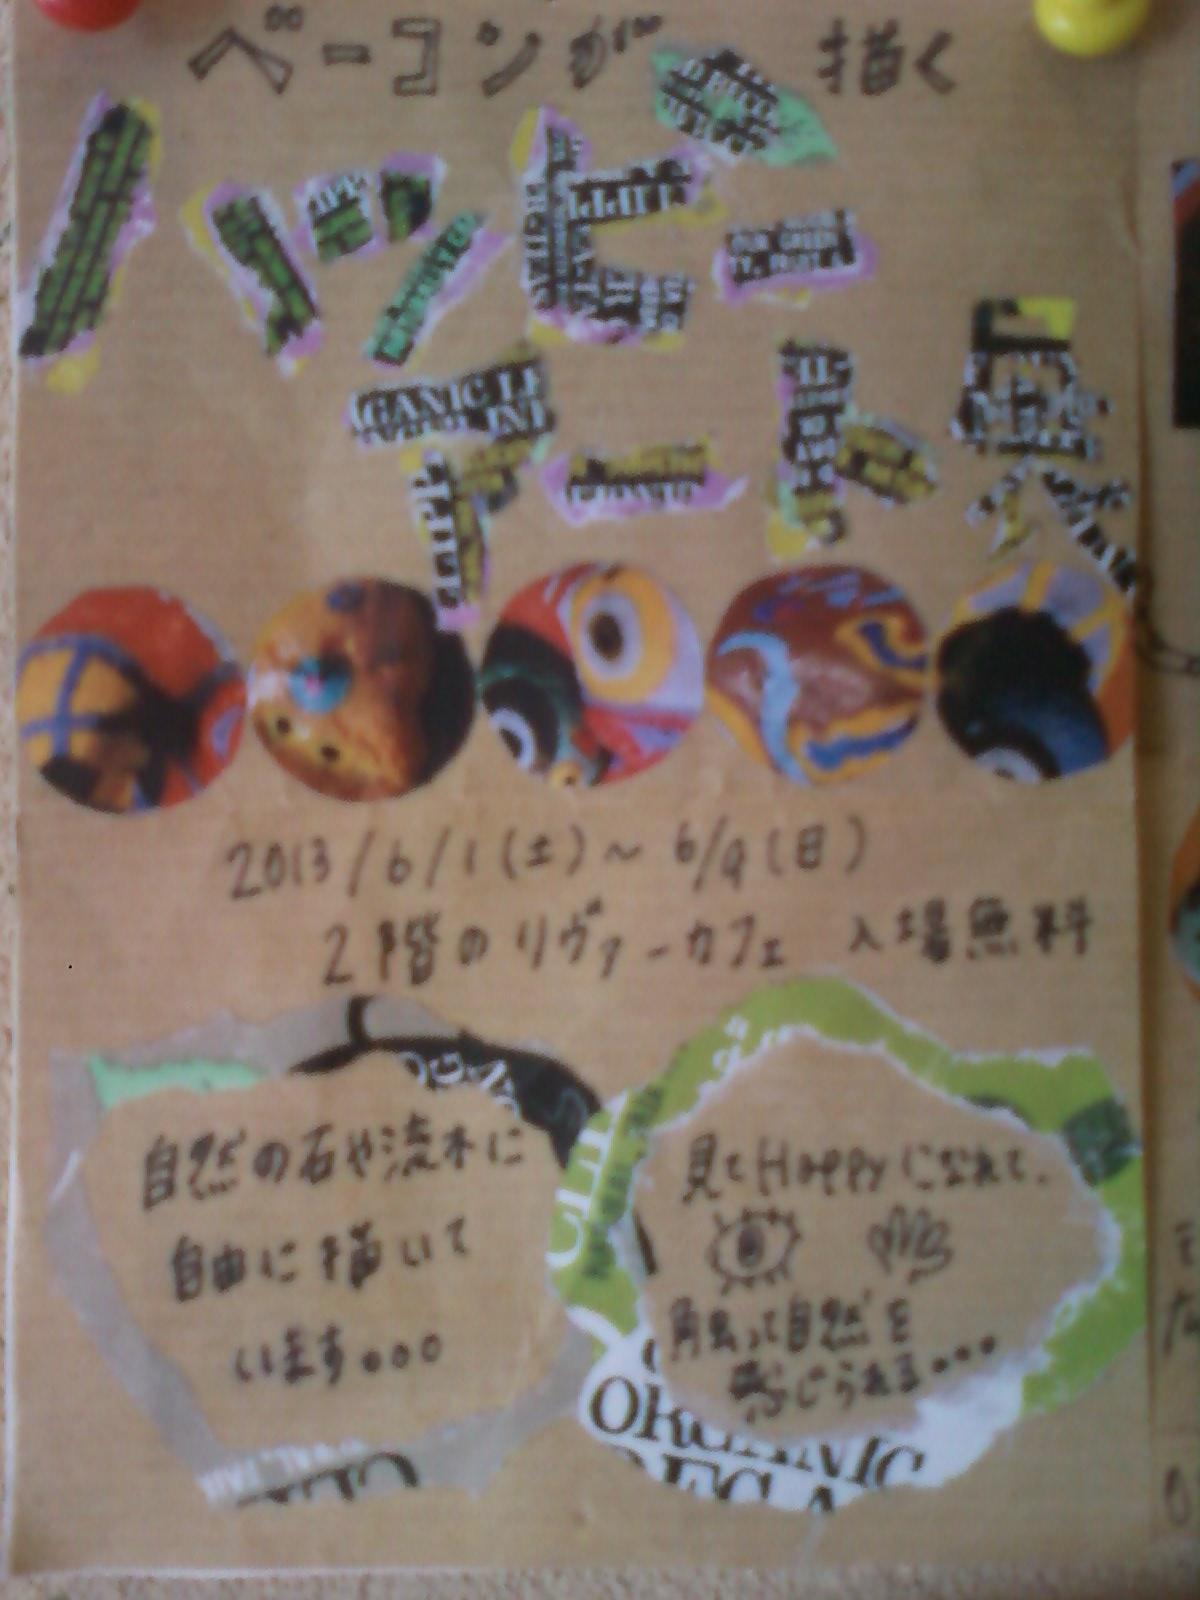 ベーコンが 描く
ハッピー
アート展
2013/6/1(土)～6/9(日)
2階のリヴァーカフェ 入場無料
自然の石や流木に
自由に描いて
います。。。
見てHappyになれて、
触って自然を
感じられる...
ORGANIC